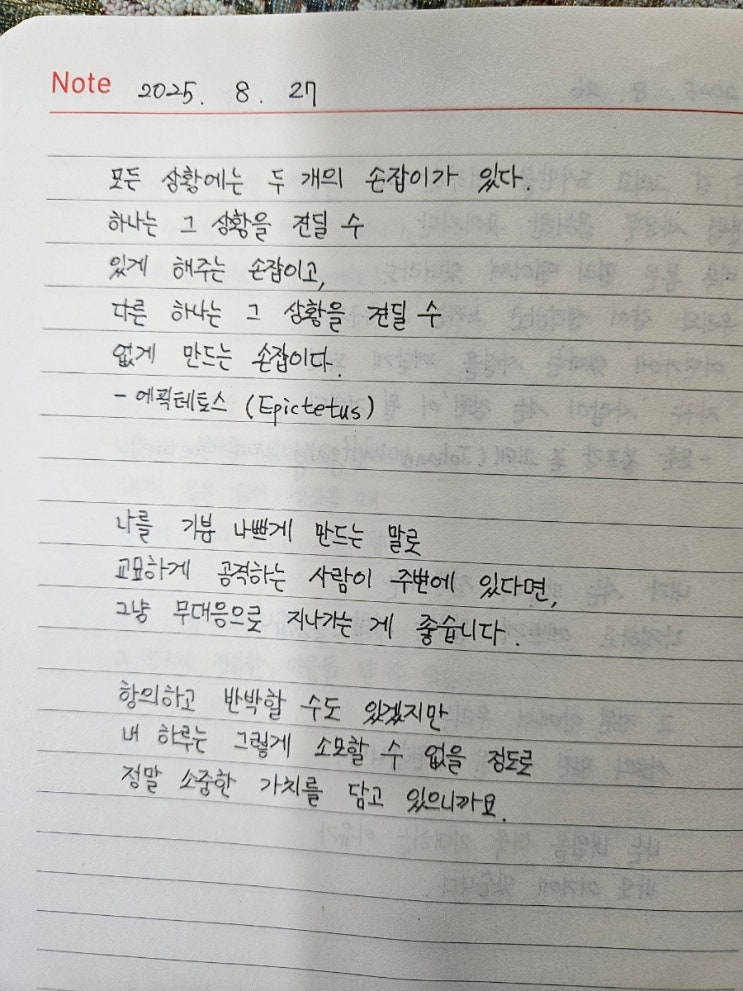 Note 2025. 8. 27
모든 상황에는 두 개의 손잡이가 있다.
하나는 그 상황을 견딜 수
있게 해주는 손잡이고,
다른 하나는 그 상황을 견딜 수
없게 만드는 손잡이다.
- 에픽테토스 (Epictetus)
나를 기분 나쁘게 만드는 말로
교묘하게 공격하는 사람이 주변에 있다면,
그냥 무대응으로 지나가는 게 좋습니다.
항의하고 반박할 수도 있겠지만
내 하루는 그렇게 소모할 수 없을 정도로
정말 소중한 가치를 담고 있으니까요.